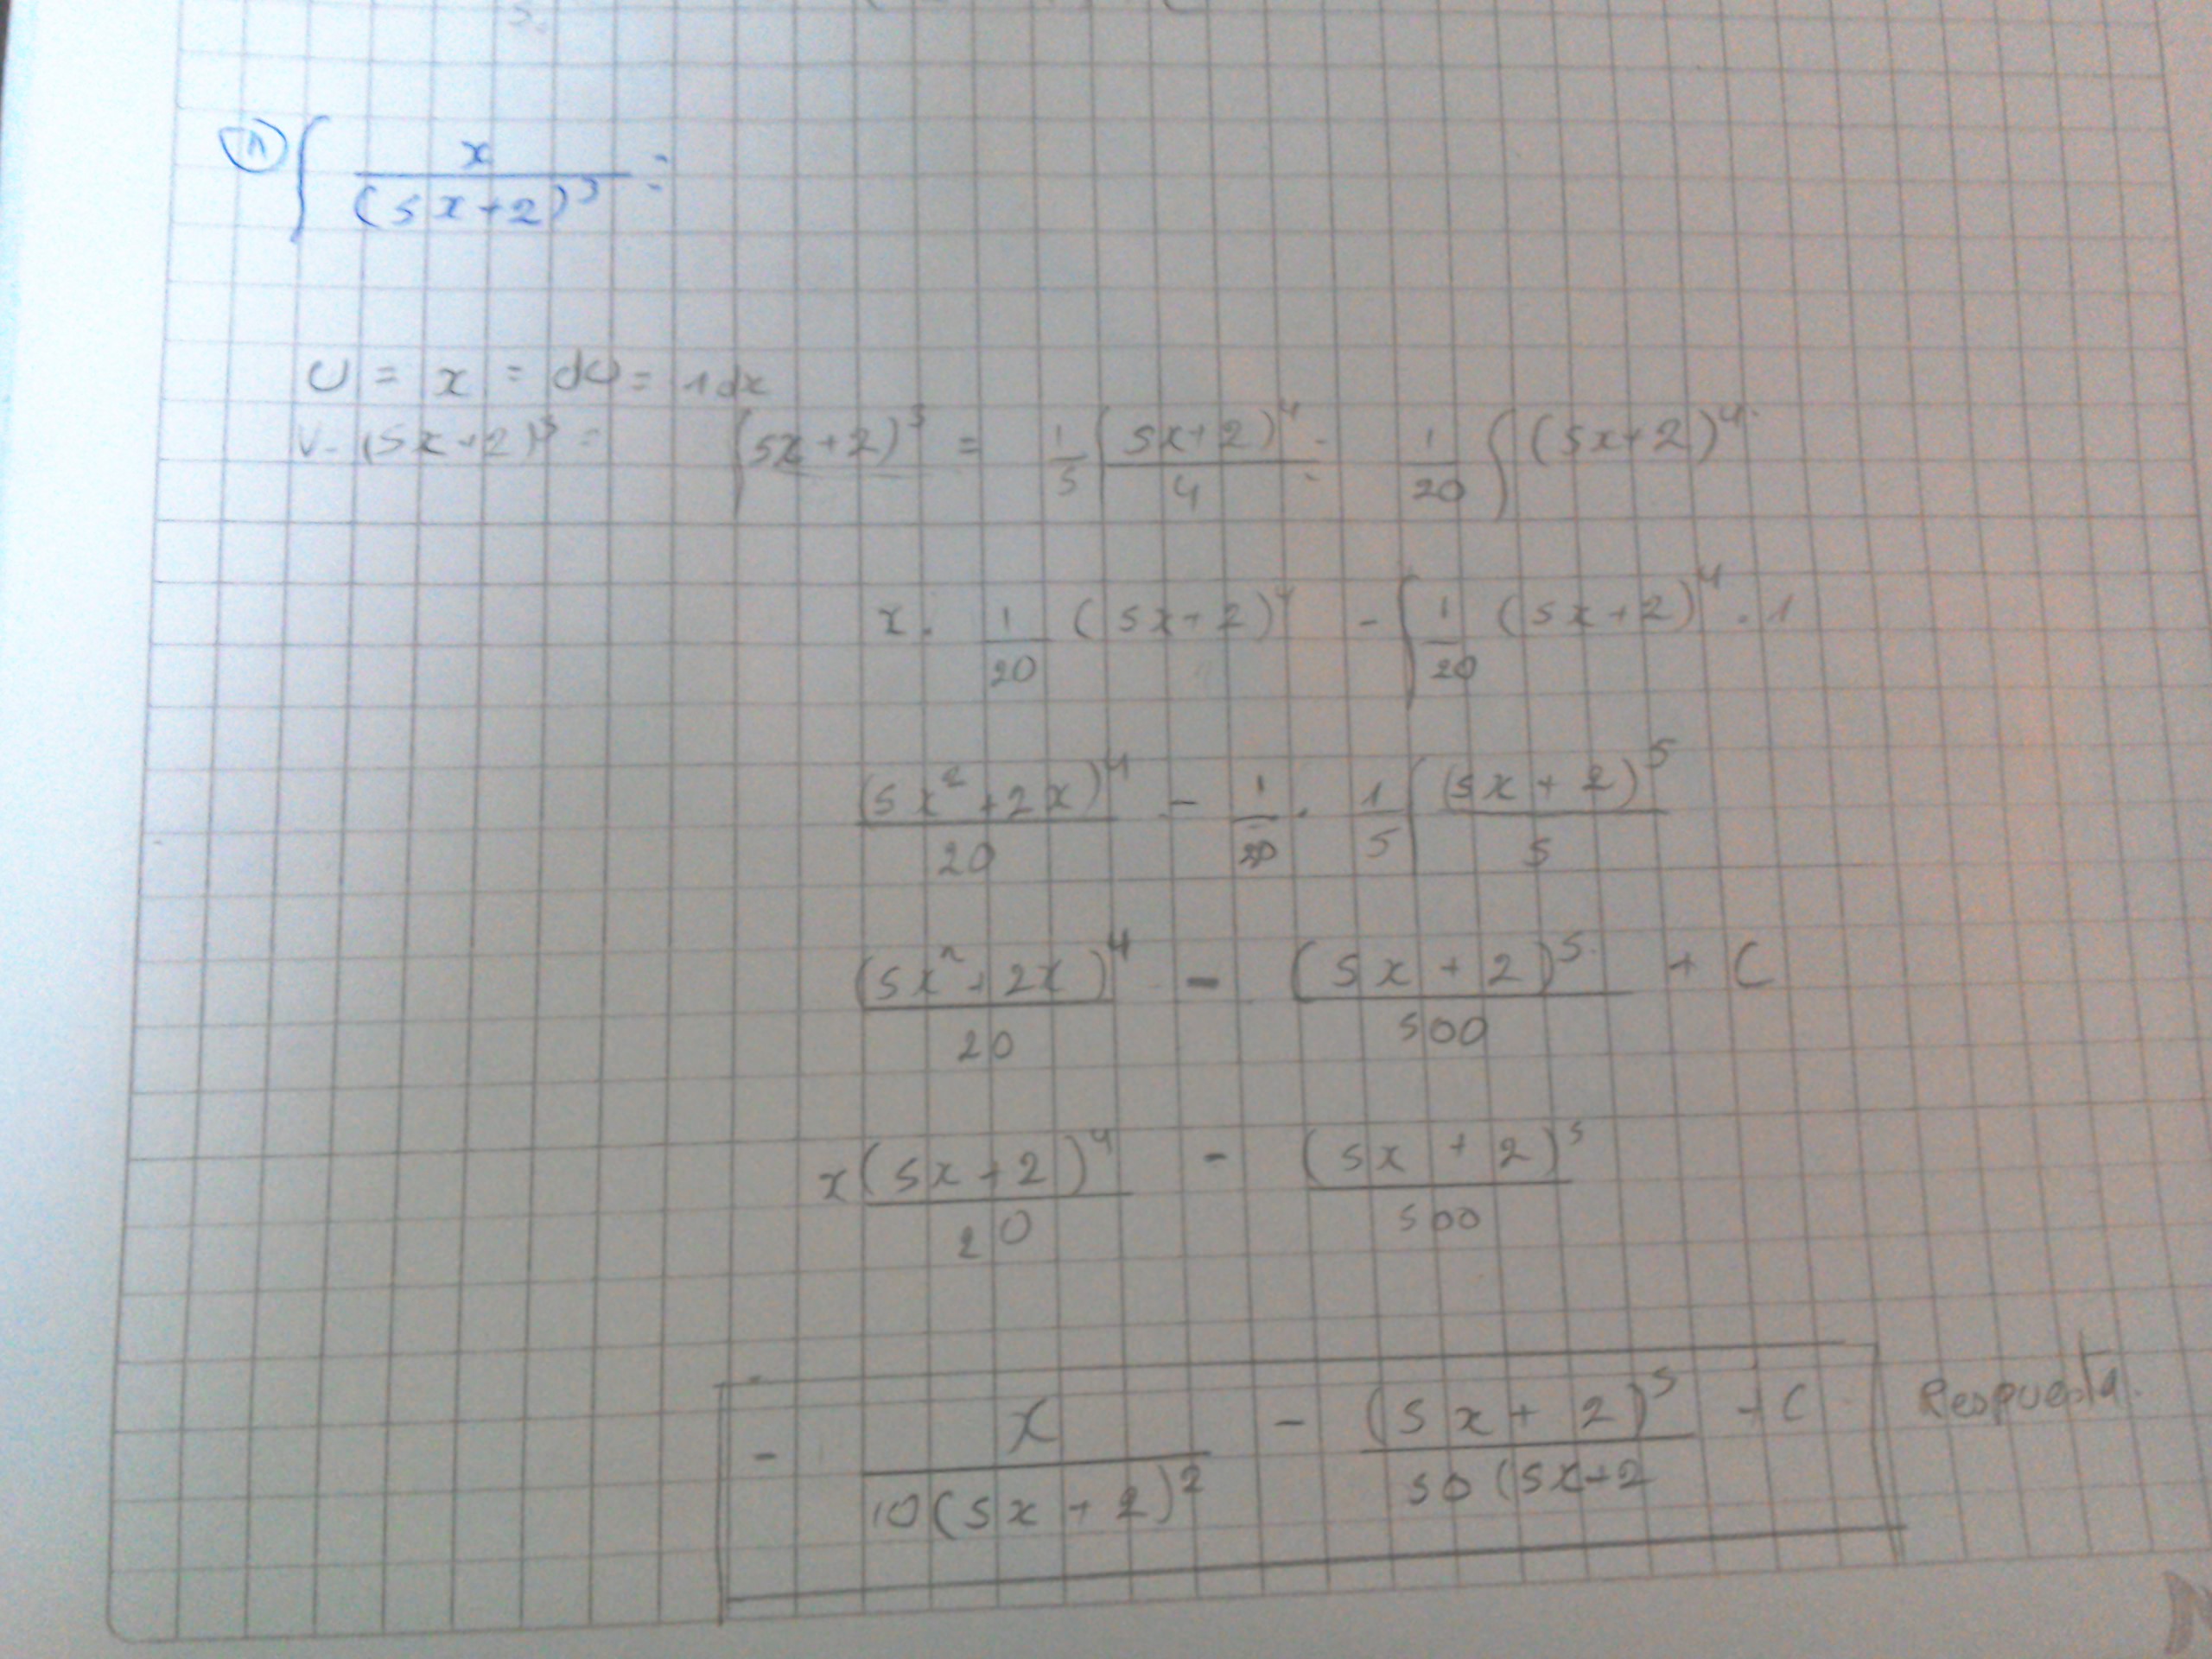 ① ∫ x / (5x+2)³ =
U = x = dU = 1dx
V = (5x+2)³ = ∫(5x+2)³ = 1/5 ∫ (5x+2)⁴/4 = 1/20 ∫ (5x+2)⁴
x · 1/20 (5x+2)⁴ - ∫ 1/20 (5x+2)⁴ · 1
(5x²+2x)⁴/20 - 1/20 · 1/5 ∫ (5x+2)⁵/5
(5x²+2x)⁴/20 - (5x+2)⁵/500 + C
x(5x+2)⁴/20 - (5x+2)⁵/500
- x/10(5x+2)² - (5x+2)⁵/50(5x+2 + C Respuesta.